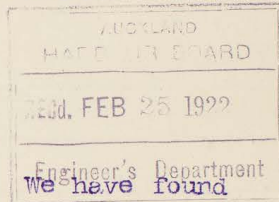 AUCKLAND
HARBOUR BOARD
RECd. FEB 25 1922
Engineer's Department
We have found